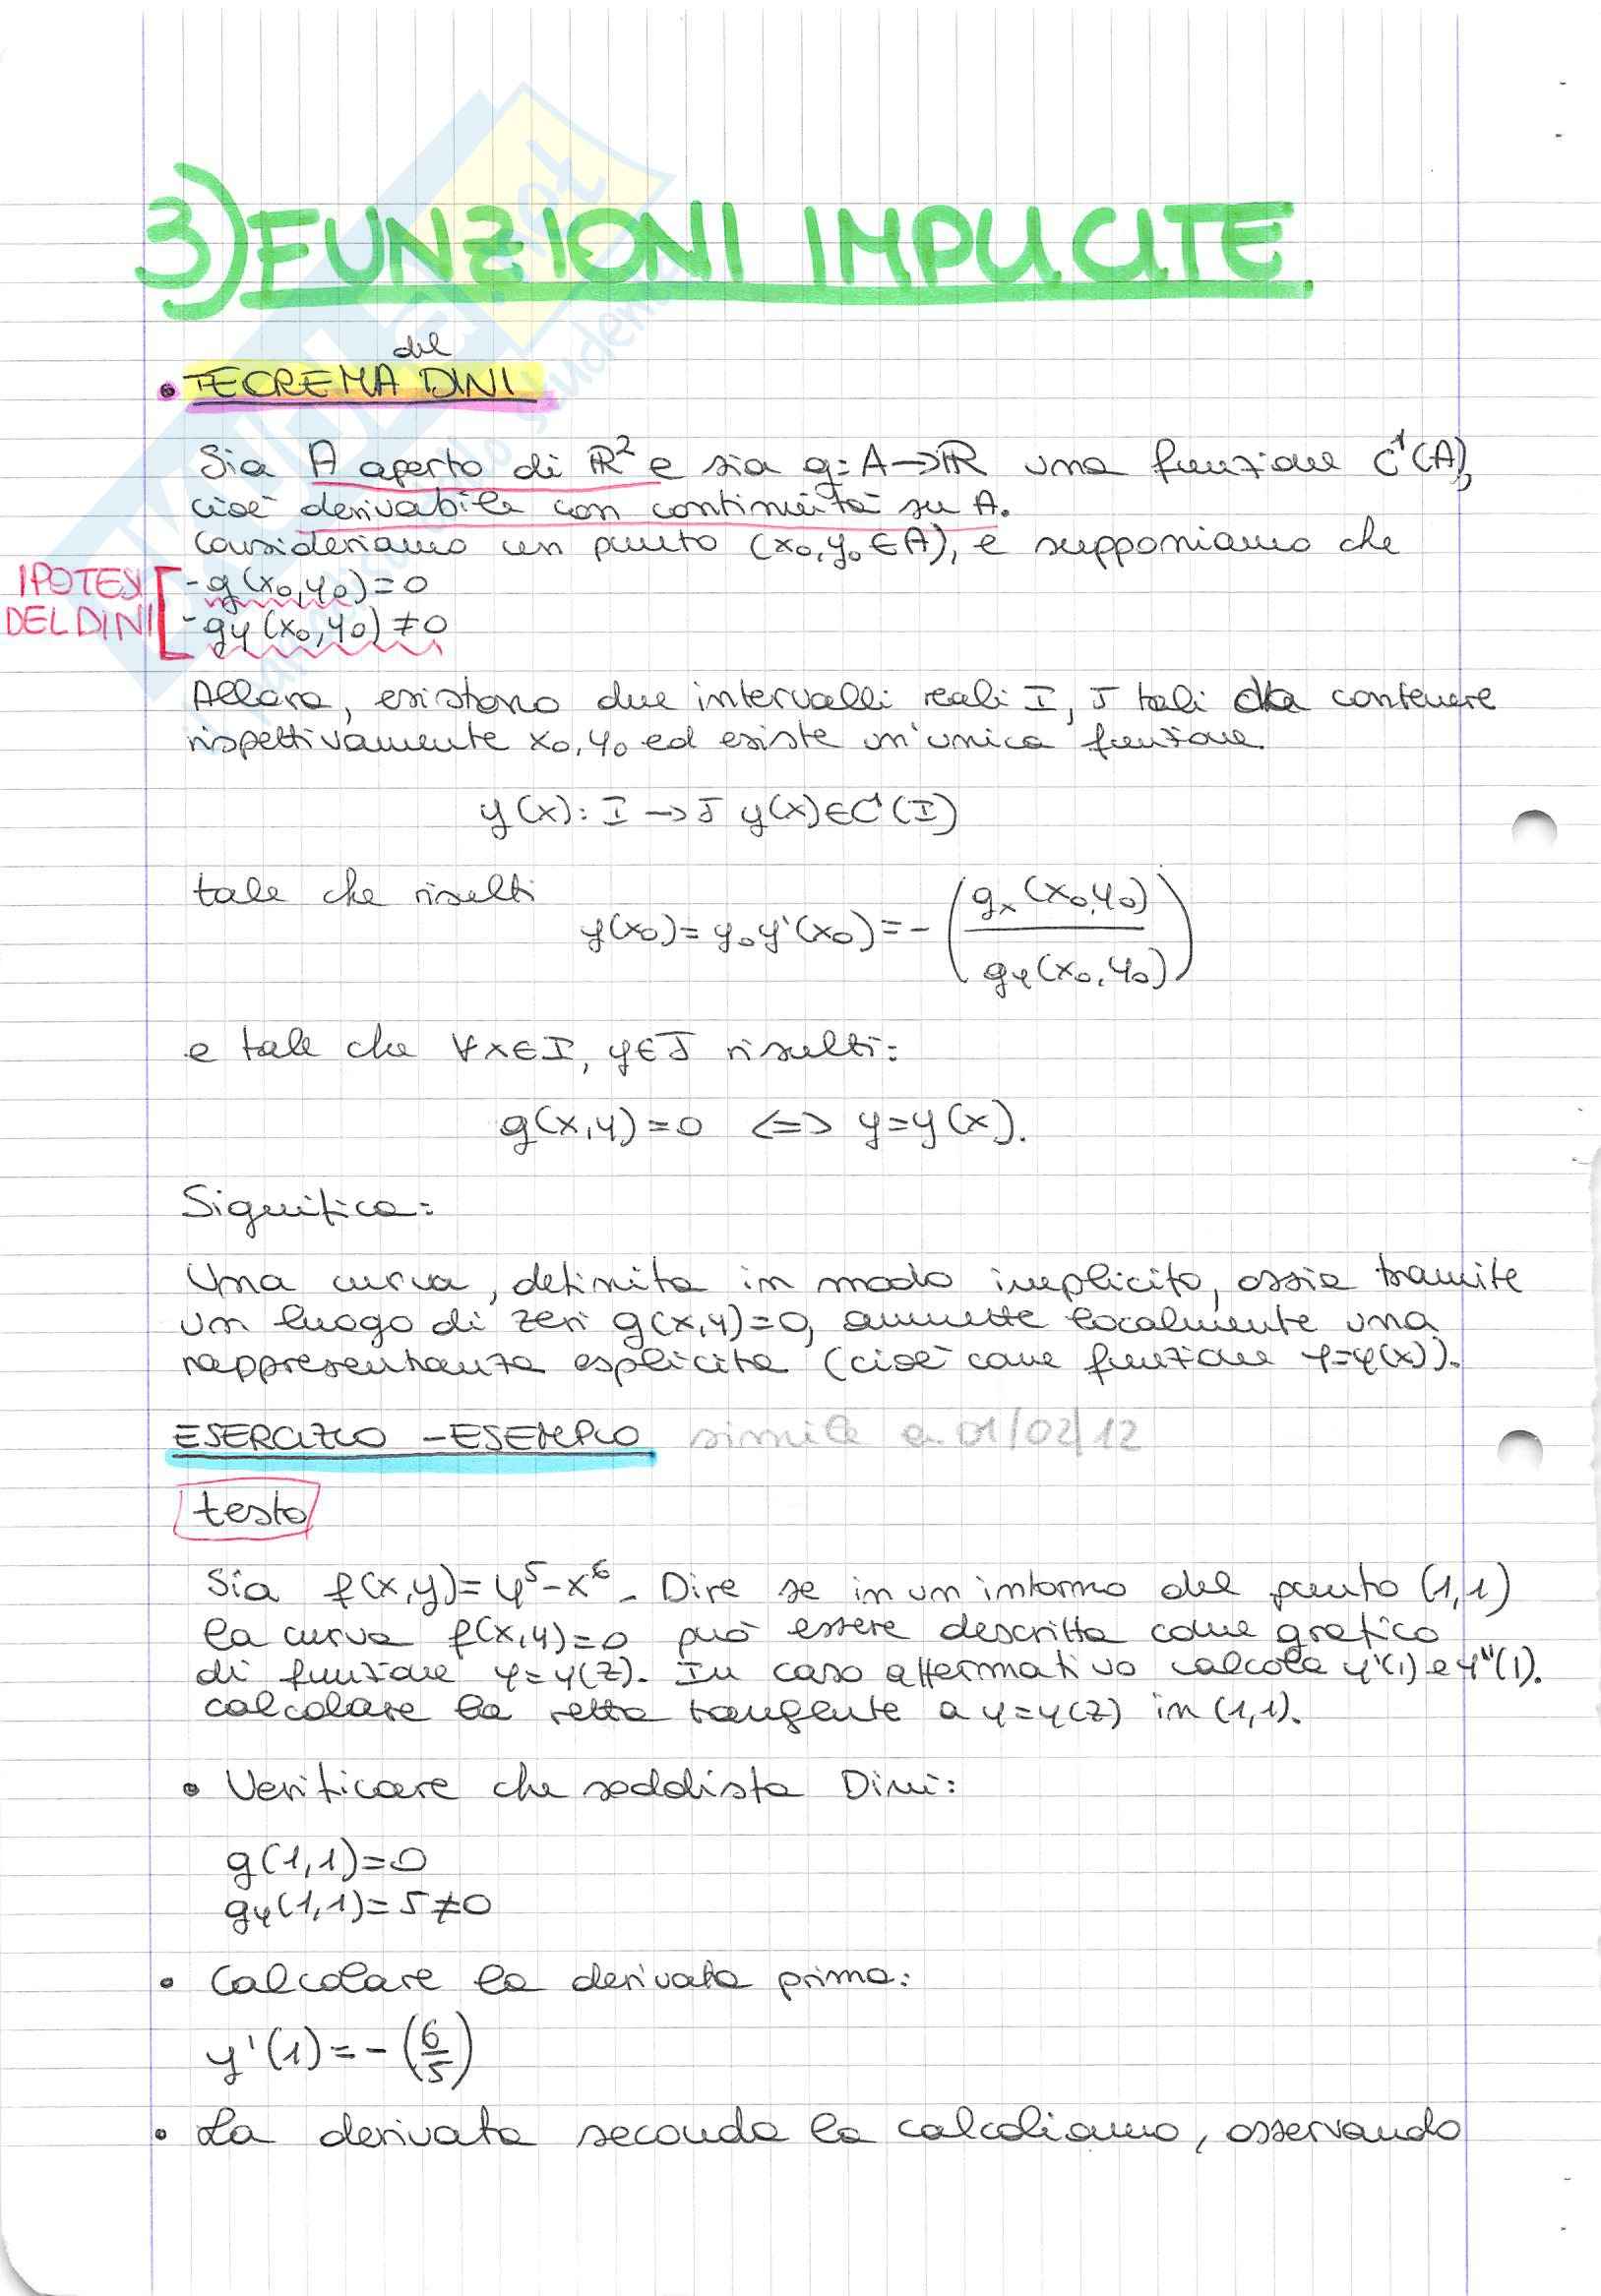 3) FUNZIONI IMPLICITE
del
• TEOREMA DINI
Sia A aperto di ℝ² e sia g: A→ℝ una funzione C¹(A),
cioè derivabile con continuità su A.
Consideriamo un punto (x₀,y₀∈A), e supponiamo che
IPOTESI DEL DINI
- g(x₀,y₀)=0
- gy(x₀,y₀)≠0
Allora, esistono due intervalli reali I, J tali da contenere
rispettivamente x₀,y₀ ed esiste un'unica funzione
y(x): I→J y(x)∈C¹(I)
tale che risulti
y(x₀)=y₀ y'(x₀)=-(gx(x₀,y₀)/gy(x₀,y₀))
e tale che ∀x∈I, y∈J risulti:
g(x,y)=0 <=> y=y(x).
Significa:
Una curva, definita in modo implicito, ossia tramite
un luogo di zeri g(x,y)=0, ammette localmente una
rappresentanza esplicita (cioè come funzione y=y(x)).
ESERCIZIO - ESEMPIO simile a 01/02/12
testo
Sia f(x,y)=y⁵-x⁶. Dire se in un intorno del punto (1,1)
la curva f(x,y)=0 può essere descritta come grafico
di funzione y=y(z). In caso affermativo calcola y'(1) e y''(1).
calcolare la retta tangente a y=y(z) in (1,1).
• Verificare che soddisfa Dini:
g(1,1)=0
gy(1,1)=5≠0
• Calcolare la derivata prima:
y'(1)=-(6/5)
• La derivata seconda la calcoliamo, osservando